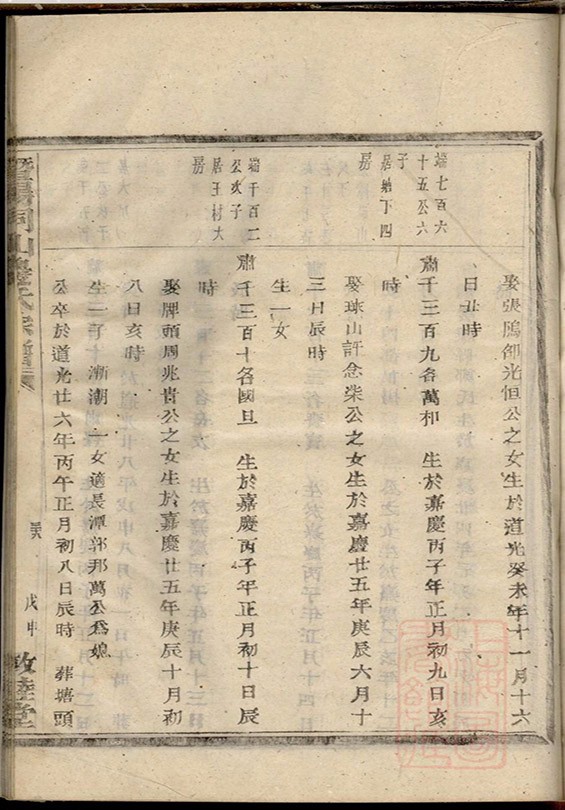 娶張鴈邵光恒公之女生於道光癸未年十一月十六
日丑時
端七百六
十五公六
子
居塘下四
房
肅千三百九名萬和　生於嘉慶丙子年正月初九日亥
時
娶球山許念柴公之女生於嘉慶廿五年庚辰六月十
三日辰時
生一女
端千百二
公次子
居王村大
房
肅千三百十名國旦　生於嘉慶丙子年正月初十日辰
時
娶牌頭周兆貴公之女生於嘉慶廿五年庚辰十月初
八日亥時
生一子漸潮　一女適長潭郭那萬公爲娘
公卒於道光廿六年丙午正月初八日辰時　葬塘頭
暨陽同山邊氏宗譜
戊申
敦睦堂